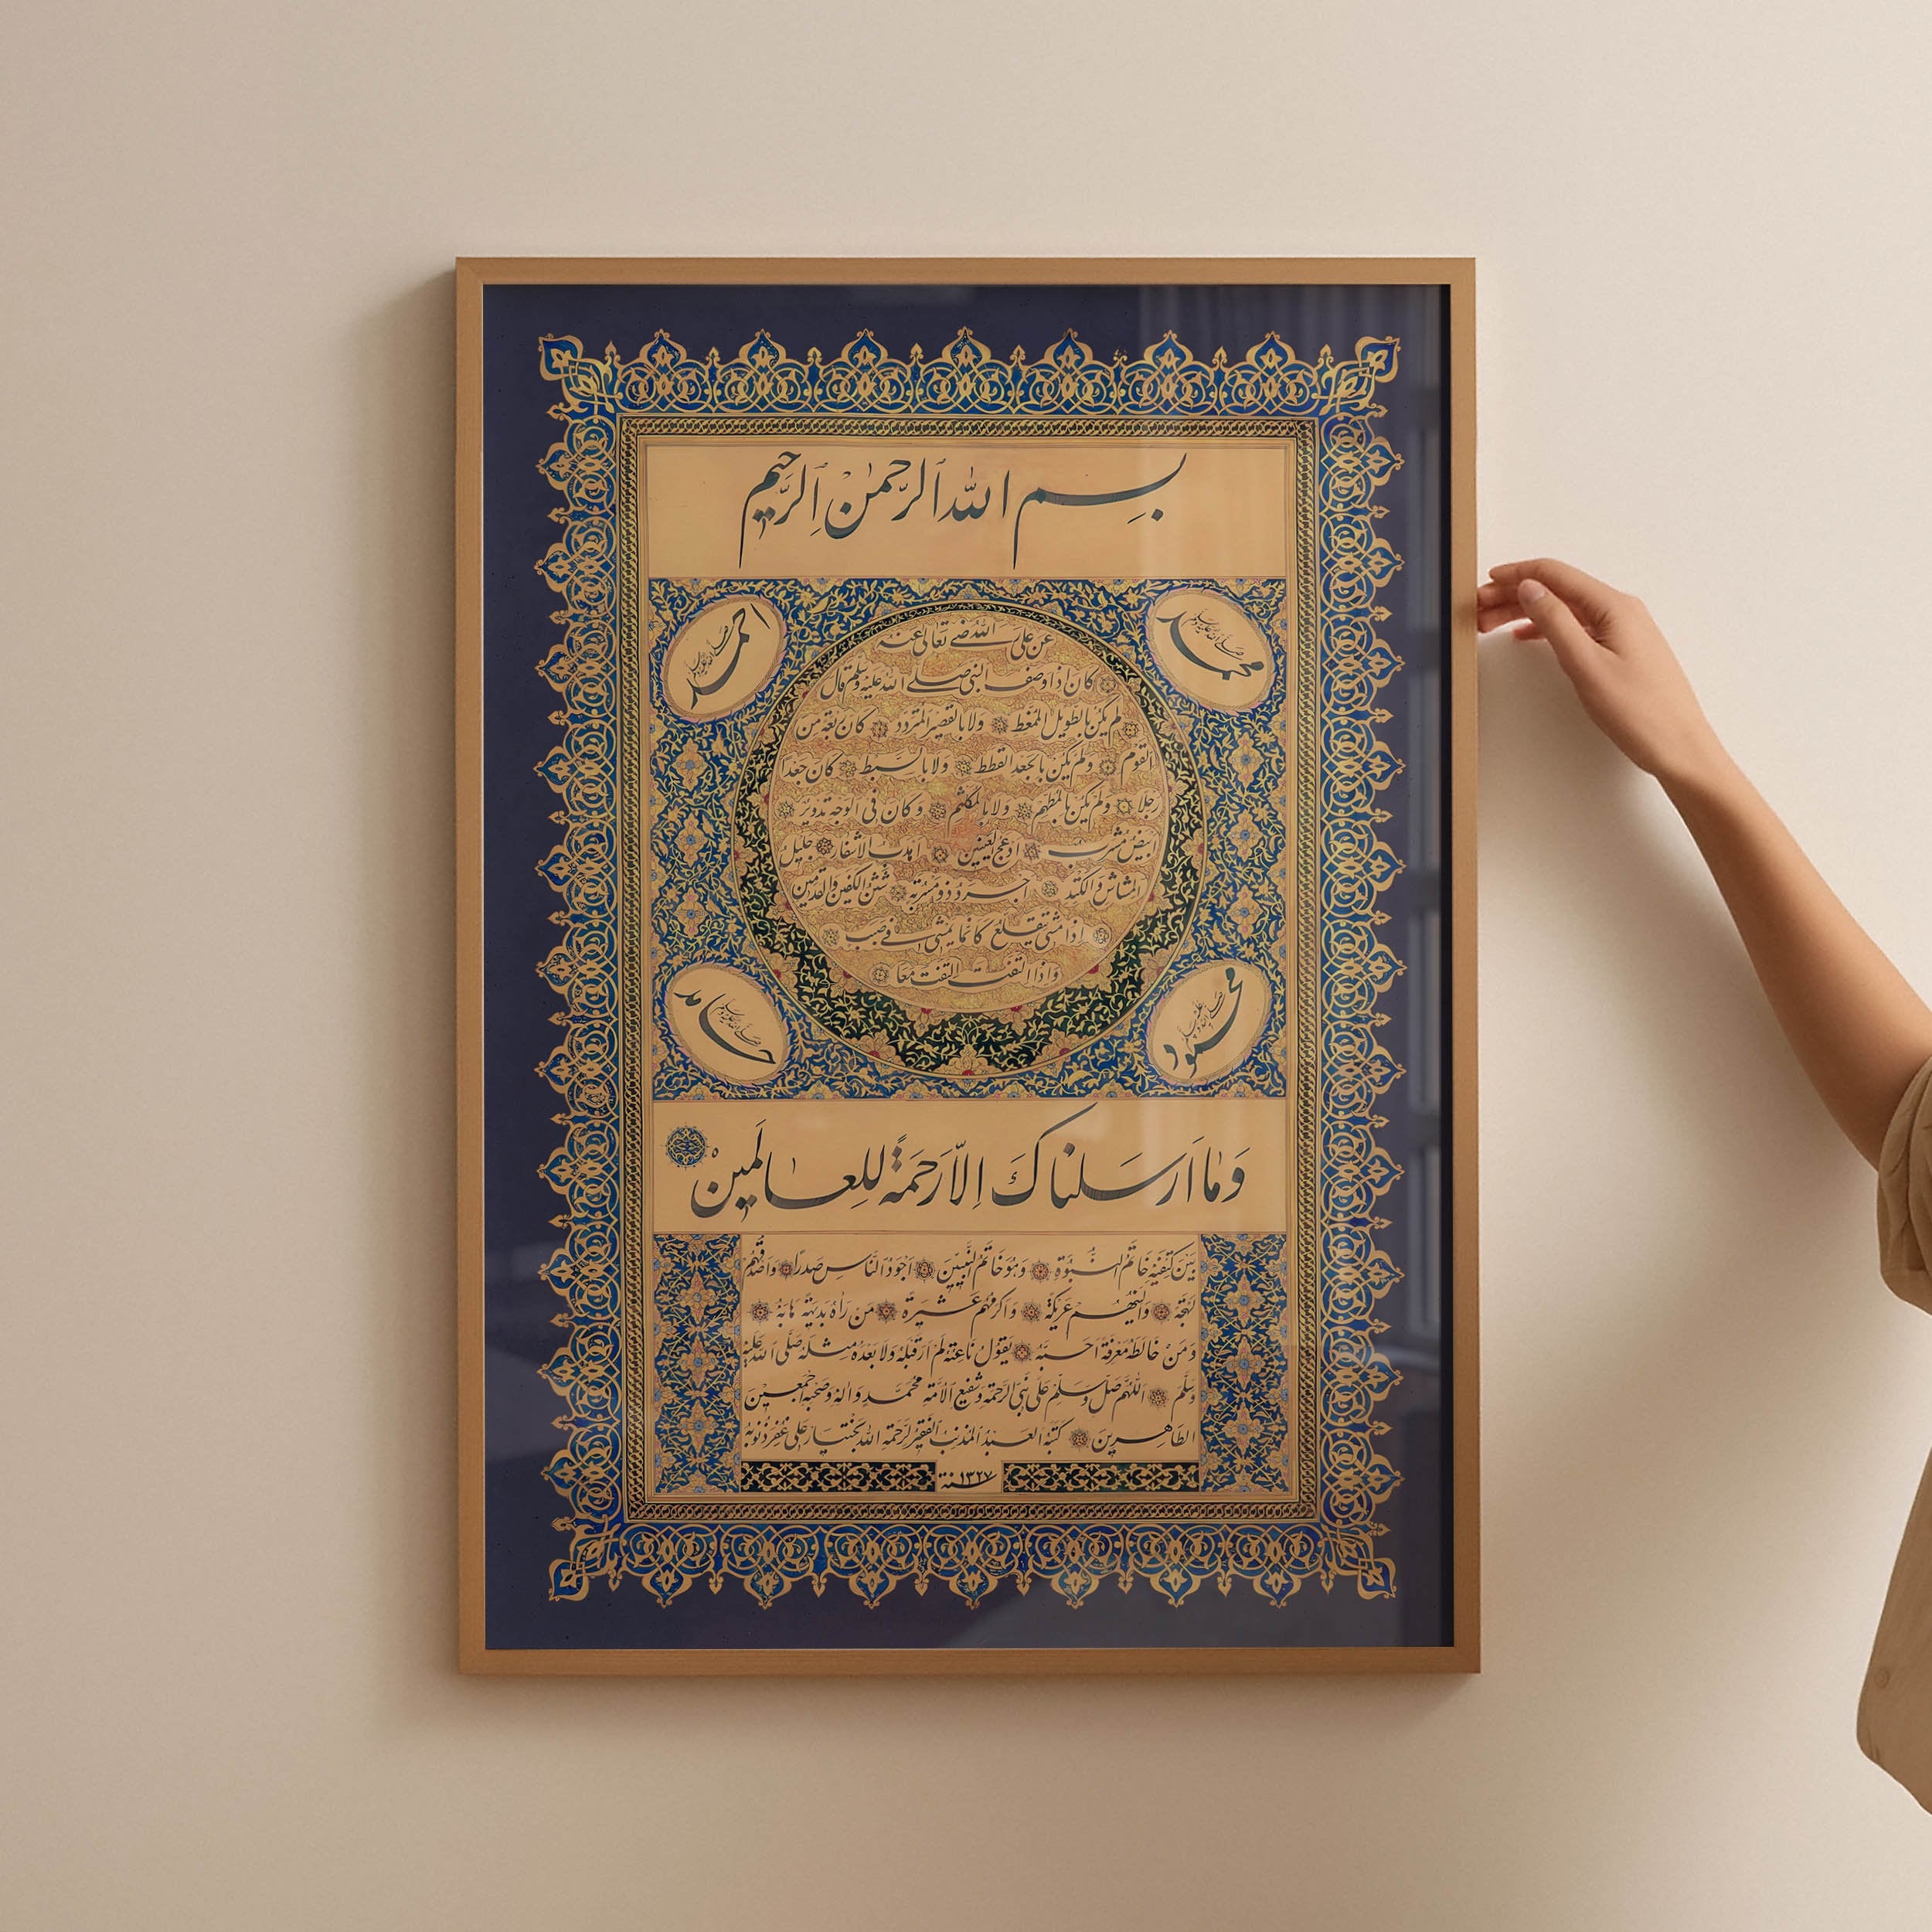 بِسم الله الرَّحمٰن الرَّحيم
محمد صلى الله عليه وسلم
احمد صلى الله عليه وسلم
عن علي رضي الله تعالى عنه
كان اذا وصف النبي صلى الله عليه وسلم قال
لم يكن بالطويل الممغط ولا بالقصير المتردد كان ربعة من
القوم ولم يكن بالجعد القطط ولا بالسبط كان جعدا
رجلا ولم يكن بالمطهم ولا بالمكلثم وكان في الوجه تدوير
ابيض مشرب ادعج العينين اهدب الاشفار جليل
المشاش والكتد اجرد ذو مسربة شثن الكفين والقدمين
اذا مشى يتقلع كانما يمشي في صبب
واذا التفت التفت معا
محمود صلى الله عليه وسلم
حامد صلى الله عليه وسلم
وَمٰا اَرسَلناكَ اِلاّ رَحمَةً لِلعالَمينْ
بين كتفيه خاتم النبوة وهو خاتم النبيين اجود الناس صدرا واصدقهم
لهجة والينهم عريكة واكرمهم عشيرة من راٰه بديهة هابه
ومن خالطه معرفة احبه يقول ناعته لم ار قبله ولا بعده مثله صلى الله عليه
وسلم اللهم صل وسلم على نبي الرحمة وشفيع الامة محمد واله وصحبه اجمعين
الطاهرين كتبه العبد المذنب الفقير لرحمة الله بختيار علي غفر ذنوبه
سنة ١٣٢٧